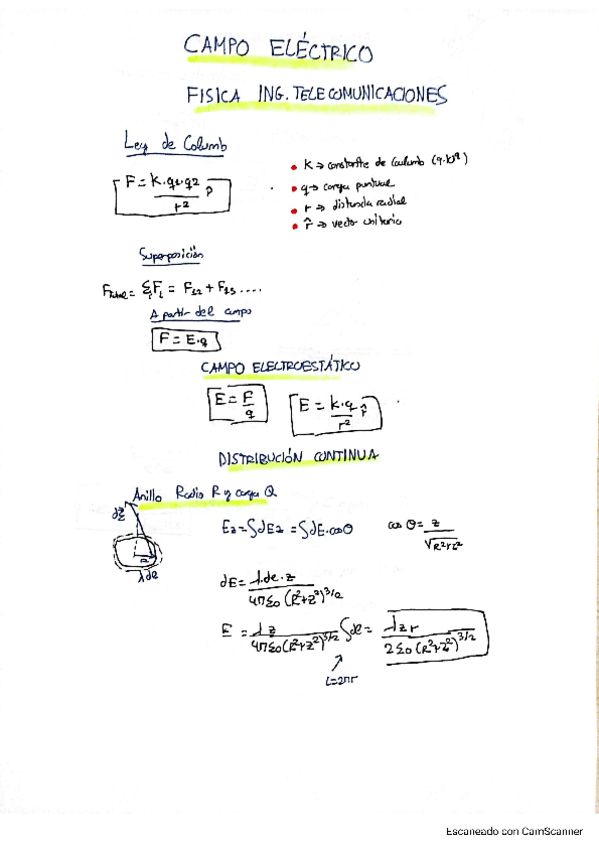 CAMPO ELÉCTRICO
FISICA ING. TELECOMUNICACIONES
Ley de Columb
F = K·q1·q2 / r² r̂
• K → constante de Coulomb (9·10⁹)
• q → carga puntual
• r → distancia radial
• r̂ → vector unitario
Superposición
F_total = Σ F_i = F12 + F13 ....
A partir del campo
F = E·q
CAMPO ELECTROESTÁTICO
E = F / q
E = K·q / r² r̂
DISTRIBUCIÓN CONTINUA
Anillo Radio R y carga Q
Ez = ∫dEz = ∫dE·cosθ
cos θ = z / √(R²+z²)
dE = λ·dl·z / 4πε0 (R²+z²)^3/2
E = λz / 4πε0(R²+z²)^3/2 ∫dl = λzr / 2ε0 (R²+z²)^3/2
L=2πr
λdl
Escaneado con CamScanner